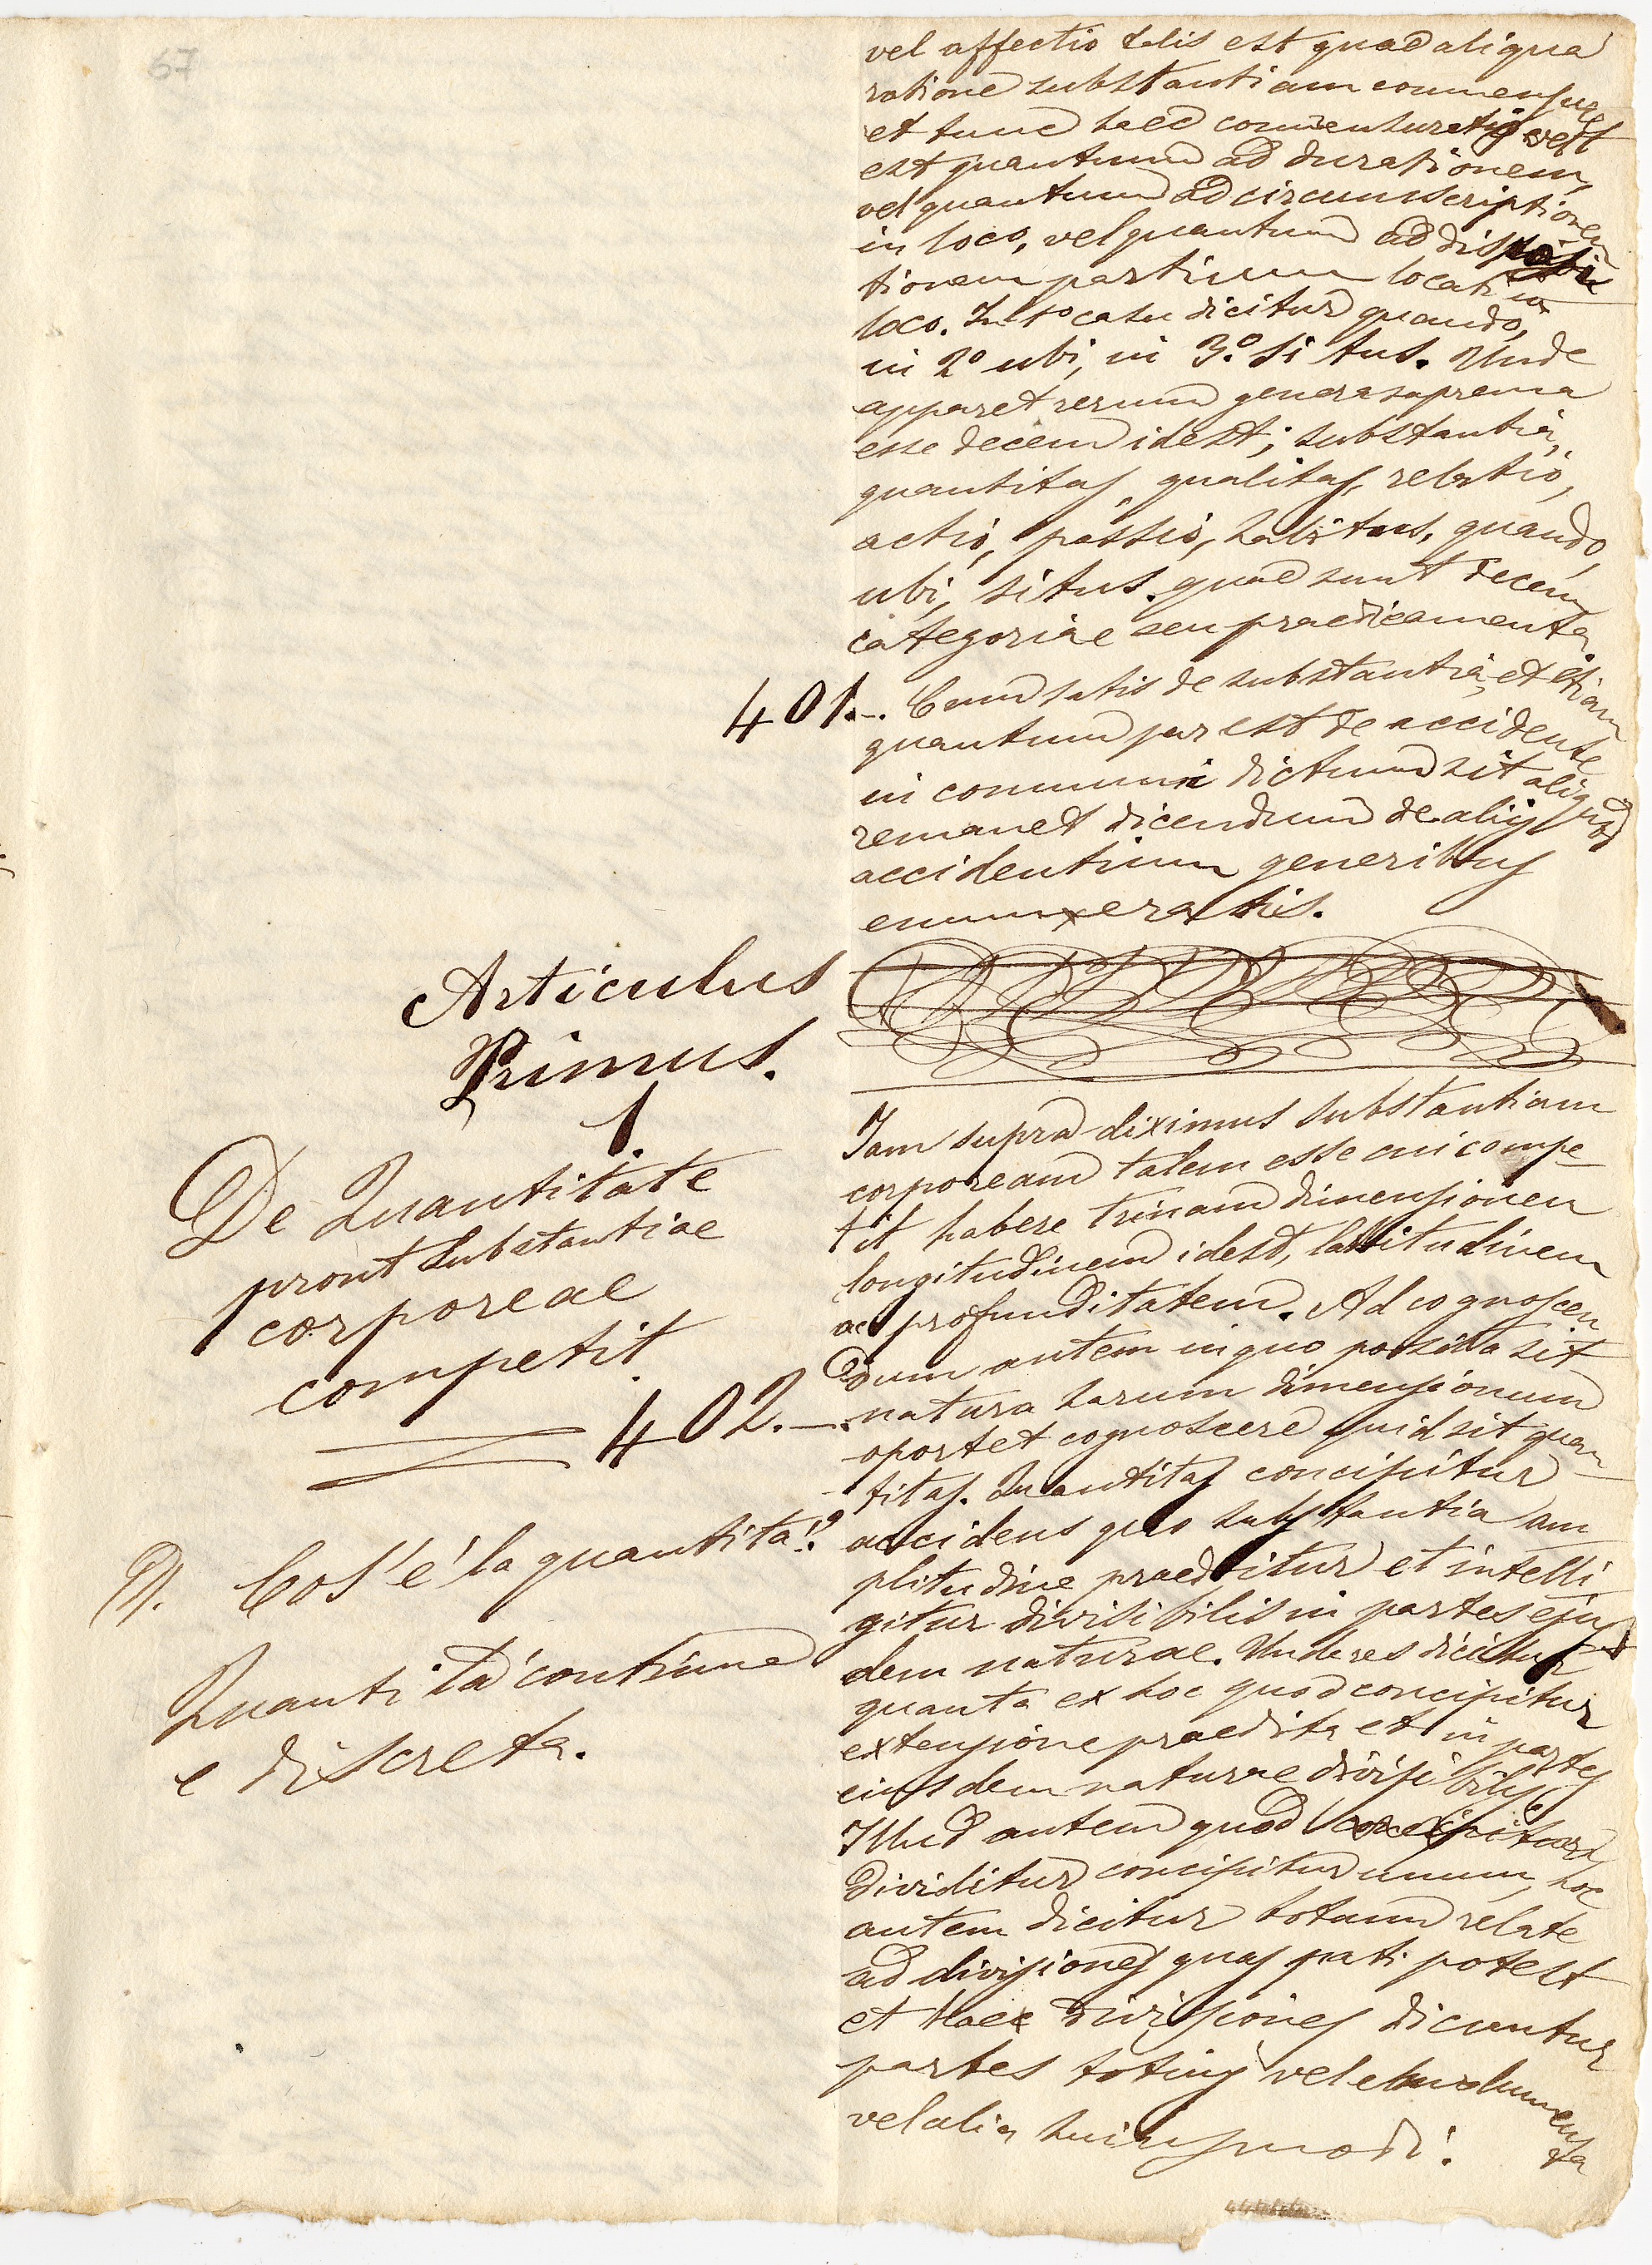 67
vel affectio talis est quae aliqua
ratione substantiam commensuret
et tunc haec commensuratio vel
est quantum ad durationem,
vel quantum ad circumscriptionem
in loco, vel quantum ad disposi
tionem partium locati in
loco. In 1º casu dicitur quando,
in 2º ubi, in 3.º situs. Unde
apparet rerum genera suprema
esse decem idest; substantia,
quantitas, qualitas, relatio,
actio, passio, habitus, quando,
ubi, situs. quae sunt decem
categoriae seu praedicamenta.
401.-. Cum satis de substantia, et etiam
quantum par est de accidente
in communi dictum sit aliquid
remanet dicendum de aliis
accidentium generibus
enumeratis.
Articulus
Primus.
1.
De Quantitate
prout substantiae
corporeae
competit.
Iam supra diximus substantiam
corpoream talem esse cui compe
tit habere trinam dimensionem
longitudinem idest, latitudinem
ac profunditatem. Ad cognoscen
dum autem in quo posita sit
402.-. natura harum dimensionum
oportet cognoscere quid sit quan
titas. Quantitas concipitur
D. Cos'è la quantità!?
accidens quo substantia am
plitudine praeditur et intelli
gitur divisibilis in partes ejus
dem naturae. Unde res dicitur
Quantità continua
e discreta.
quanta ex hoc quod concipitur
extensione praedita et in partes
eiusdem naturae divisibilis.
Illud autem quod concipitur
dividitur concipitur unum, hoc
autem dicitur totum relate
ad divisiones quas pati potest
et haec divisiones dicuntur
partes totius vel elementa
vel alia huiusmodi.